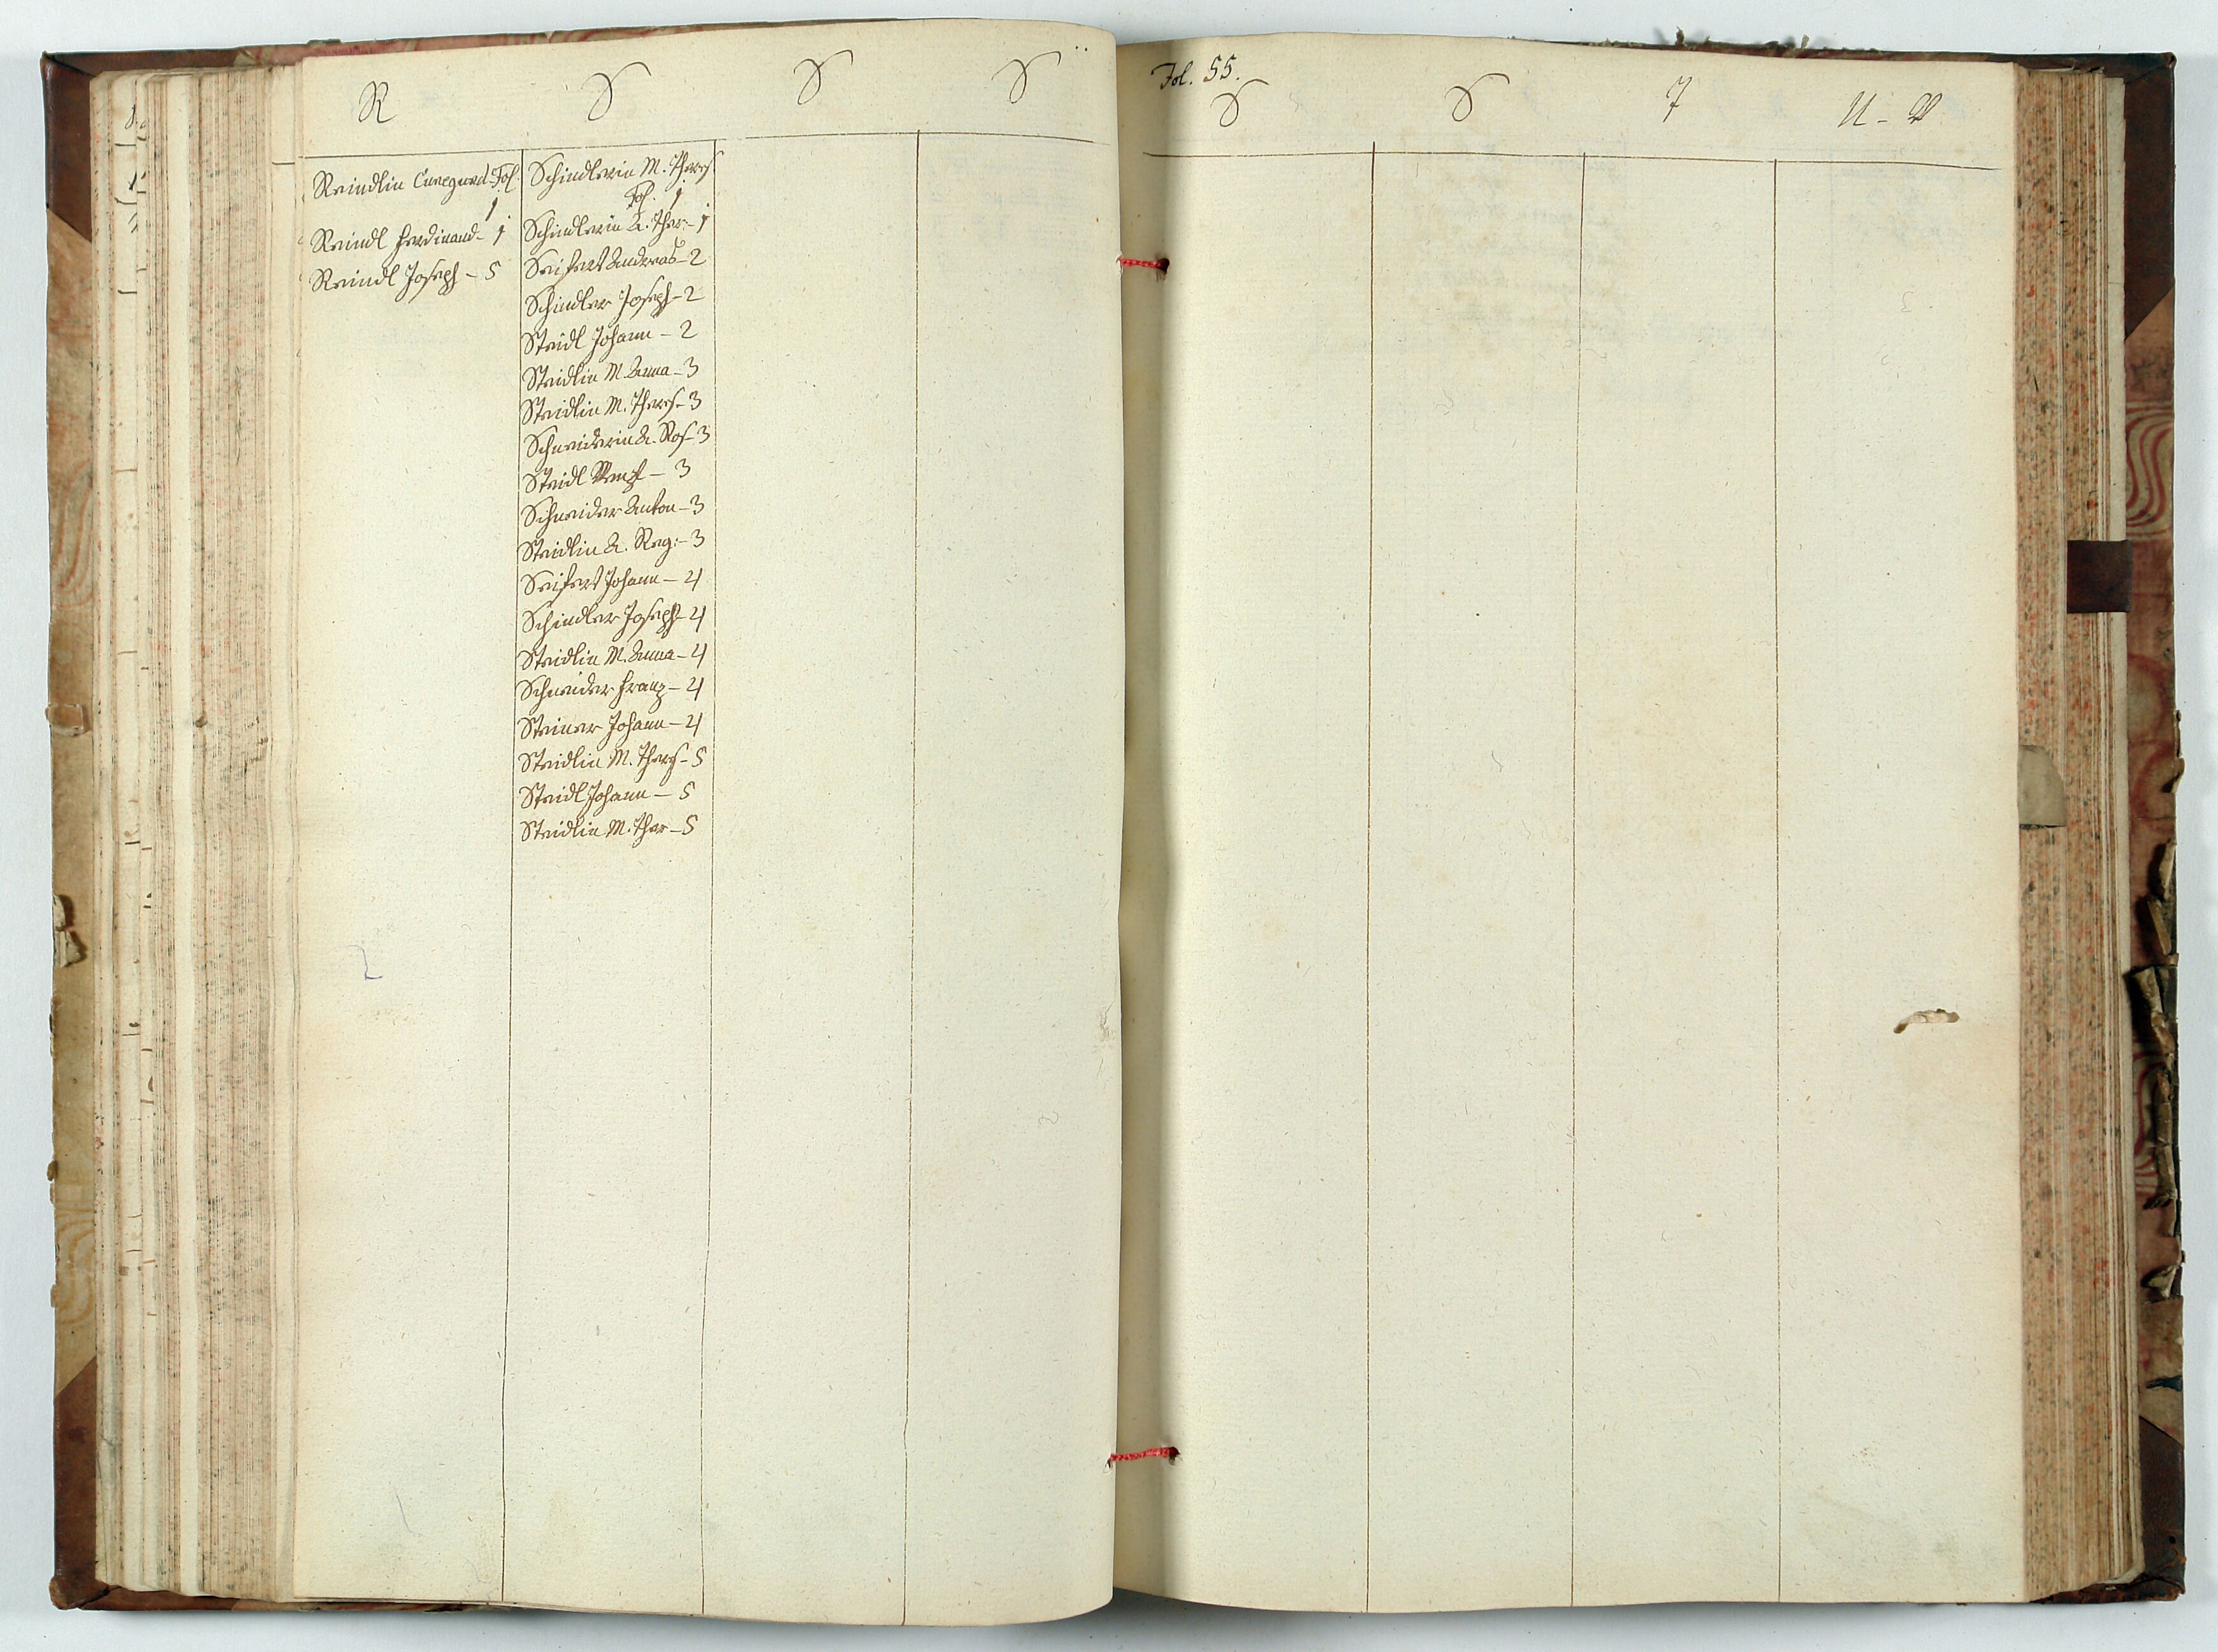 R
S
S
S
Reindlin Cunegund. Fol.
1
Reindl Ferdinand - 1
Reindl Joseph - 5
Schindlerin M. Theres.
Fol. 1
Schindlerin A. Ther: - 1
Seifert Andreas - 2
Schindler Joseph - 2
Steidl Johann - 2
Steidlin M. Anna - 3
Steidlin M. Theres - 3
Schneiderin A. Ros - 3
Steidl Wenzl - 3
Schneider Anton - 3
Steidlin A. Reg: - 3
Seifert Johann - 4
Schindler Joseph - 4
Steidlin M. Anna - 4
Schneider Franz - 4
Steiner Johann - 4
Steidlin M. Theres - 5
Steidl Johann - 5
Steidlin M. Ther - 5
Fol. 55.
S
S
T
U - W